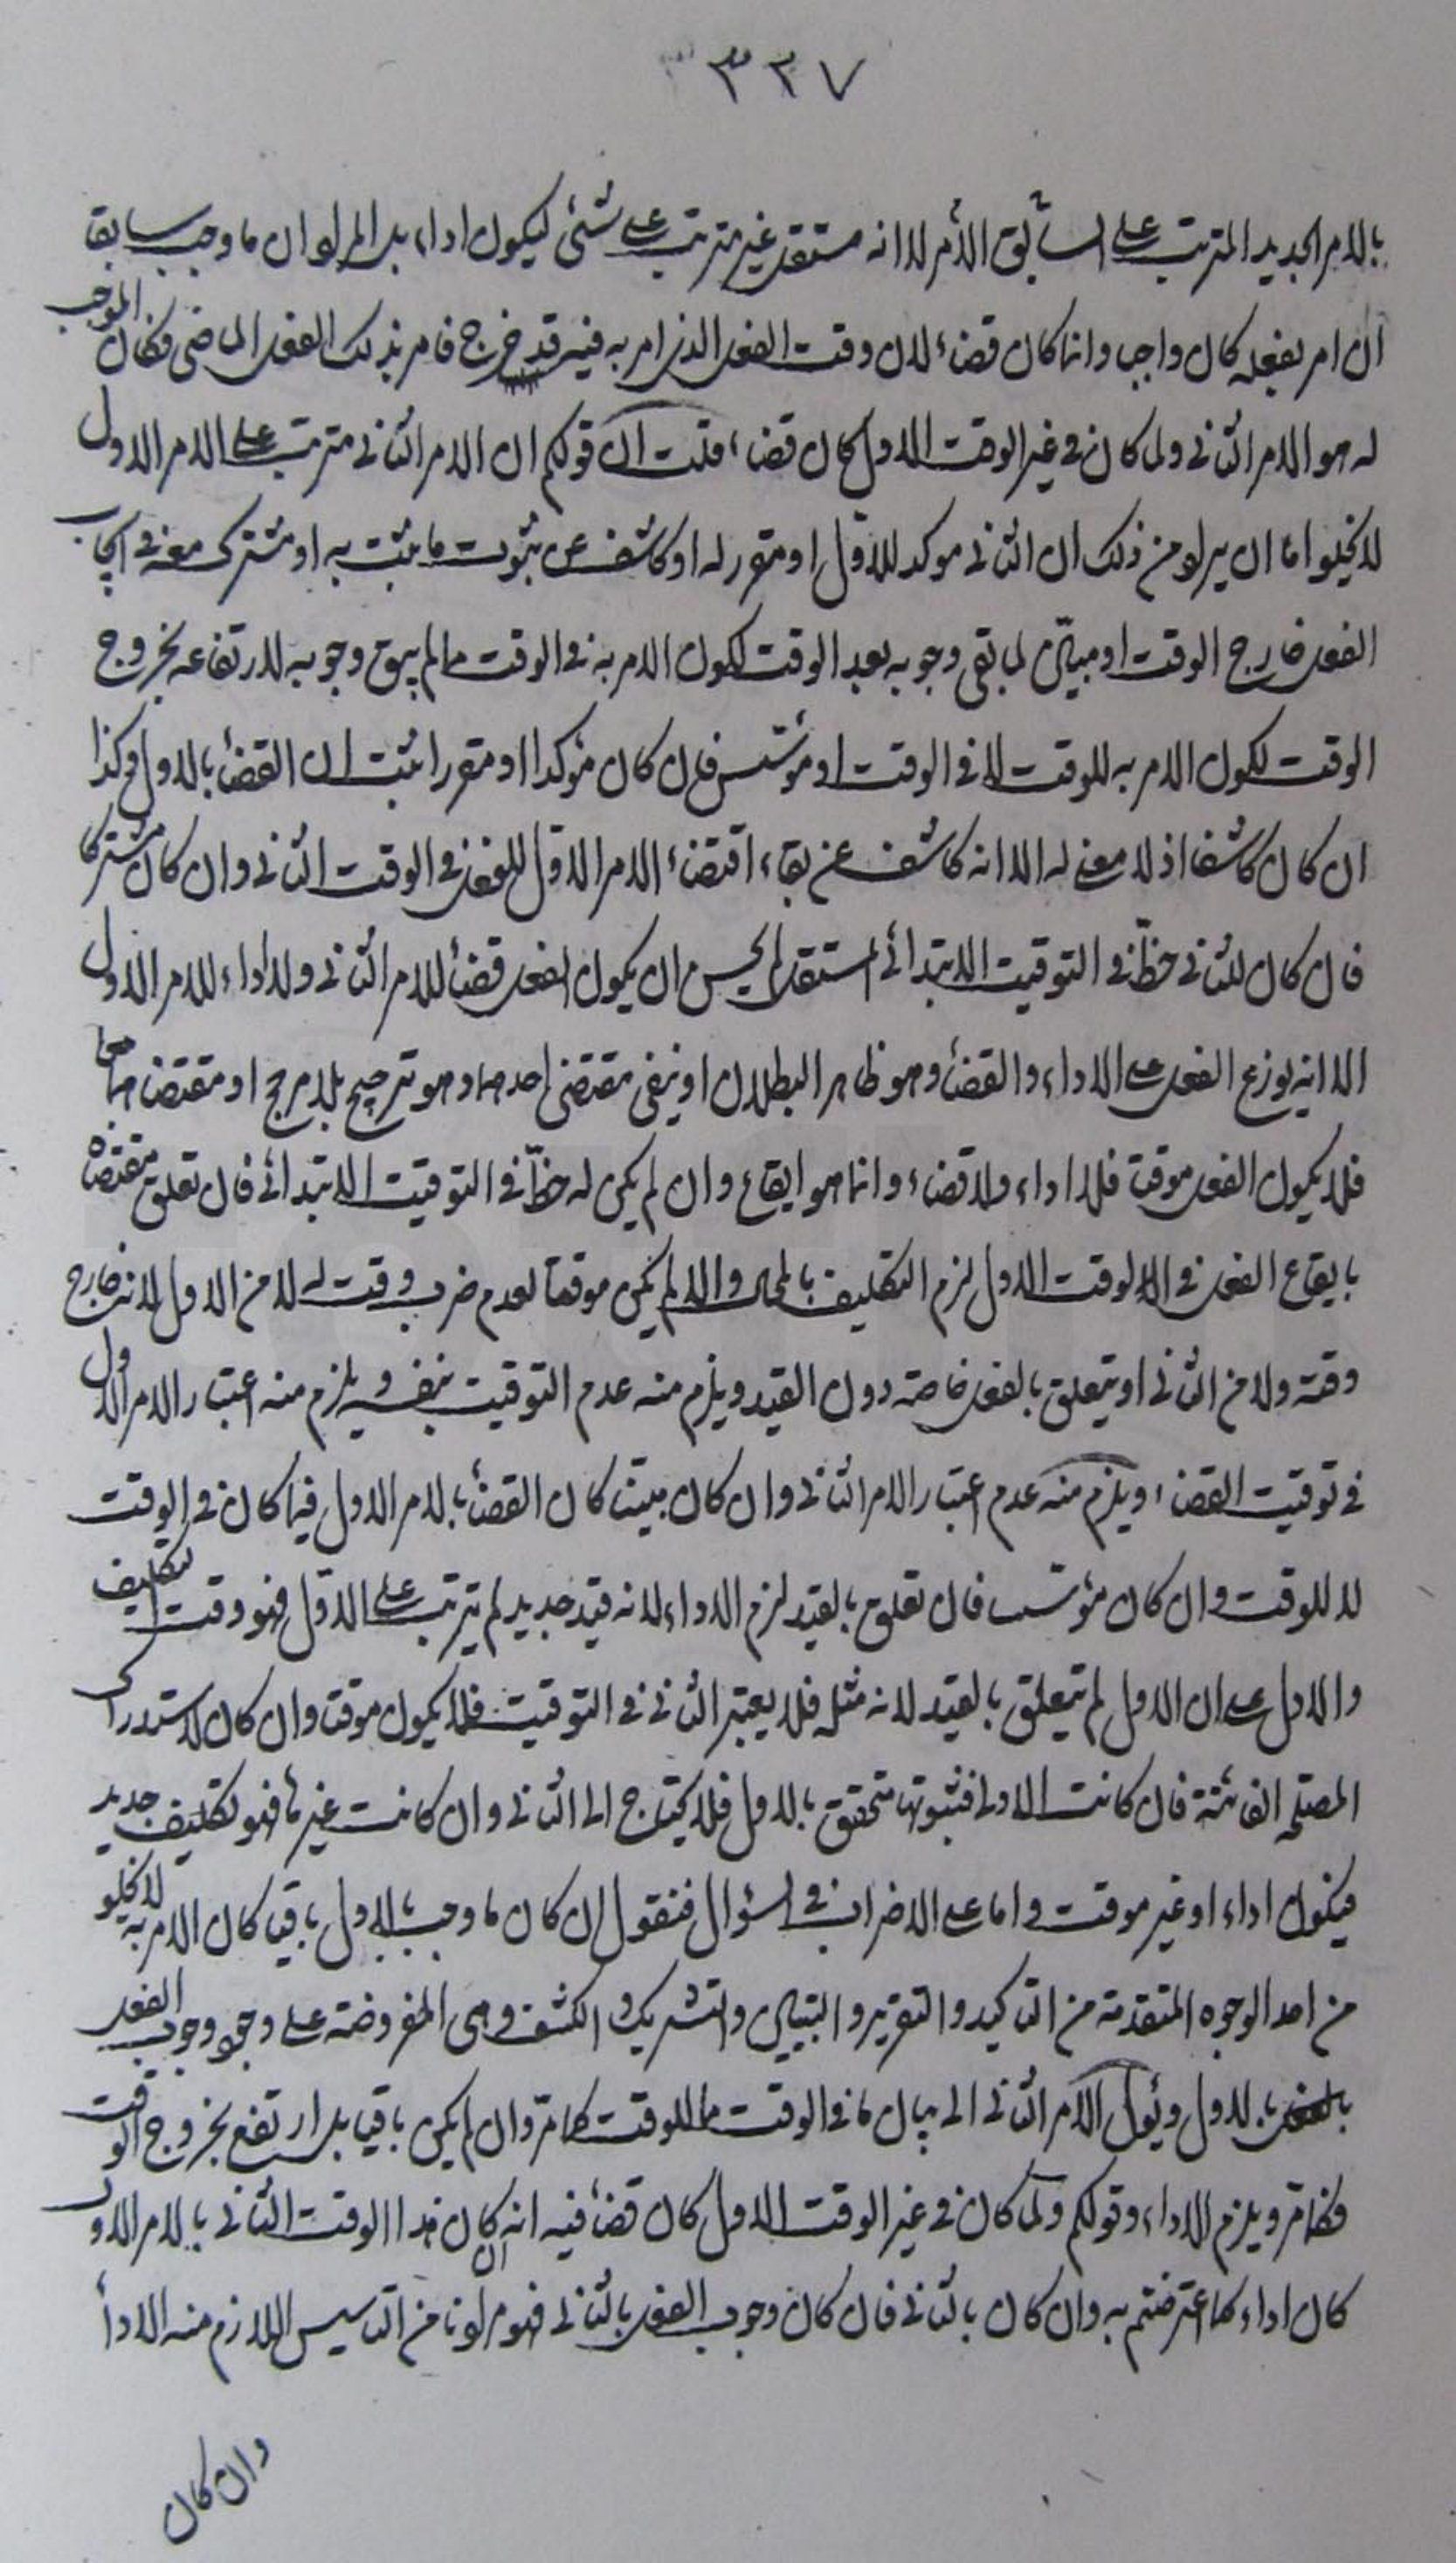 ٣٢٧
بالامر الجديد المترتب على السابق الأمر لا انه مستقل غير مترتب على شئ ليكون اداء بل المراد ان ما وجب سابقا
ان امر بفعله كان واجبا وانما كان قضاء لان وقت الفعل الذى امر به فيه قد خرج فامر بذلك الفعل الماضى فكان الموجب
له هو الامر الثانى ولما كان فى غير الوقت الاول كان قضاء قلت ان قولكم ان الامر الثانى مترتب على الامر الاول
لا يخلو اما ان يراد من ذلك ان الثانى موكد للاول او مقرر له او كاشف عن ثبوت ما يثبت به او مشترك معه فى ايجاب
الفعل خارج الوقت او مبين لما بقى وجوبه بعد الوقت لكون الامر به فى الوقت مما لم يبق وجوبه لارتفاعه بخروج
الوقت لكون الامر به للوقت لا فى الوقت او مؤسس فان كان مؤكدا او مقررا ثبت ان القضاء بالاول وكذا
ان كان كاشفا اذ لا معنى له الا انه كاشف عن بقاء اقتضاء الامر الاول للفعل فى الوقت الثانى وان كان مشتركا
فان كان للثانى حظ فى التوقيت الابتدائى المستقل لم يحسن ان يكون الفعل قضاء للامر الثانى ولا اداء للامر الاول
الا انه يوزع الفعل على الاداء والقضاء وهو ظاهر البطلان او ينفى مقتضى احدهما وهو ترجيح بلا مرجح او مقتضاهما معا
فلا يكون الفعل موقتا فلا اداء ولا قضاء وانما هو ايقاع وان لم يكن له حظ فى التوقيت الابتدائى فان تعلق مقتضاه
بايقاع الفعل فى الوقت الاول لزم التكليف بالمحال والا لم يكن موقتا لعدم ضرب وقت له لا من الاول لانه خارج
وقته ولا من الثانى او يتعلق بالفعل خاصة دون القيد ويلزم منه عدم التوقيت بنفسه ويلزم منه اعتبار الامر الاول
فى توقيت القضاء ويلزم منه عدم اعتبار الامر الثانى وان كان مبينا كان القضاء بالامر الاول فيما كان فى الوقت
لا للوقت وان كان مؤسسا فان تعلق بالقيد لزم الاداء لانه قيد جديد لم يترتب على الاول فهو وقت لتكليف
والا دل على ان الاول لم يتعلق بالقيد لانه مثله فلا يعتبر الثانى فى التوقيت فلا يكون موقتا وان كان لاستدراك
المصلحة الفائتة فان كانت الاولى فثبوتها متحقق بالاول فلا يحتاج الى الثانى وان كانت غيرها فهو تكليف جديد
فيكون اداء او غير موقت واما على الاضراب فى السؤال فنقول ان كان ما وجب بالاول باقيا كان الامر به لا يخلو
من احد الوجوه المتقدمة من التاكيد والتقرير والتبيين والتشريك والكشف وهى المفروضة على وجه وجوب الفعل
بالاول ويئول الامر الثانى الى بيان ما فى الوقت مما للوقت كما مر وان لم يكن باقيا بل ارتفع بخروج الوقت
فكما مر ويلزم الاداء وقولكم ولما كان فى غير الوقت الاول كان قضاء فيه انه ان كان هذا الوقت الثانى بالامر الاول
كان اداء كما اعترضتم به وان كان بالثانى فان كان وجوب الفعل بالثانى فهو مرادنا من التاسيس اللازم منه الاداء
وان كان